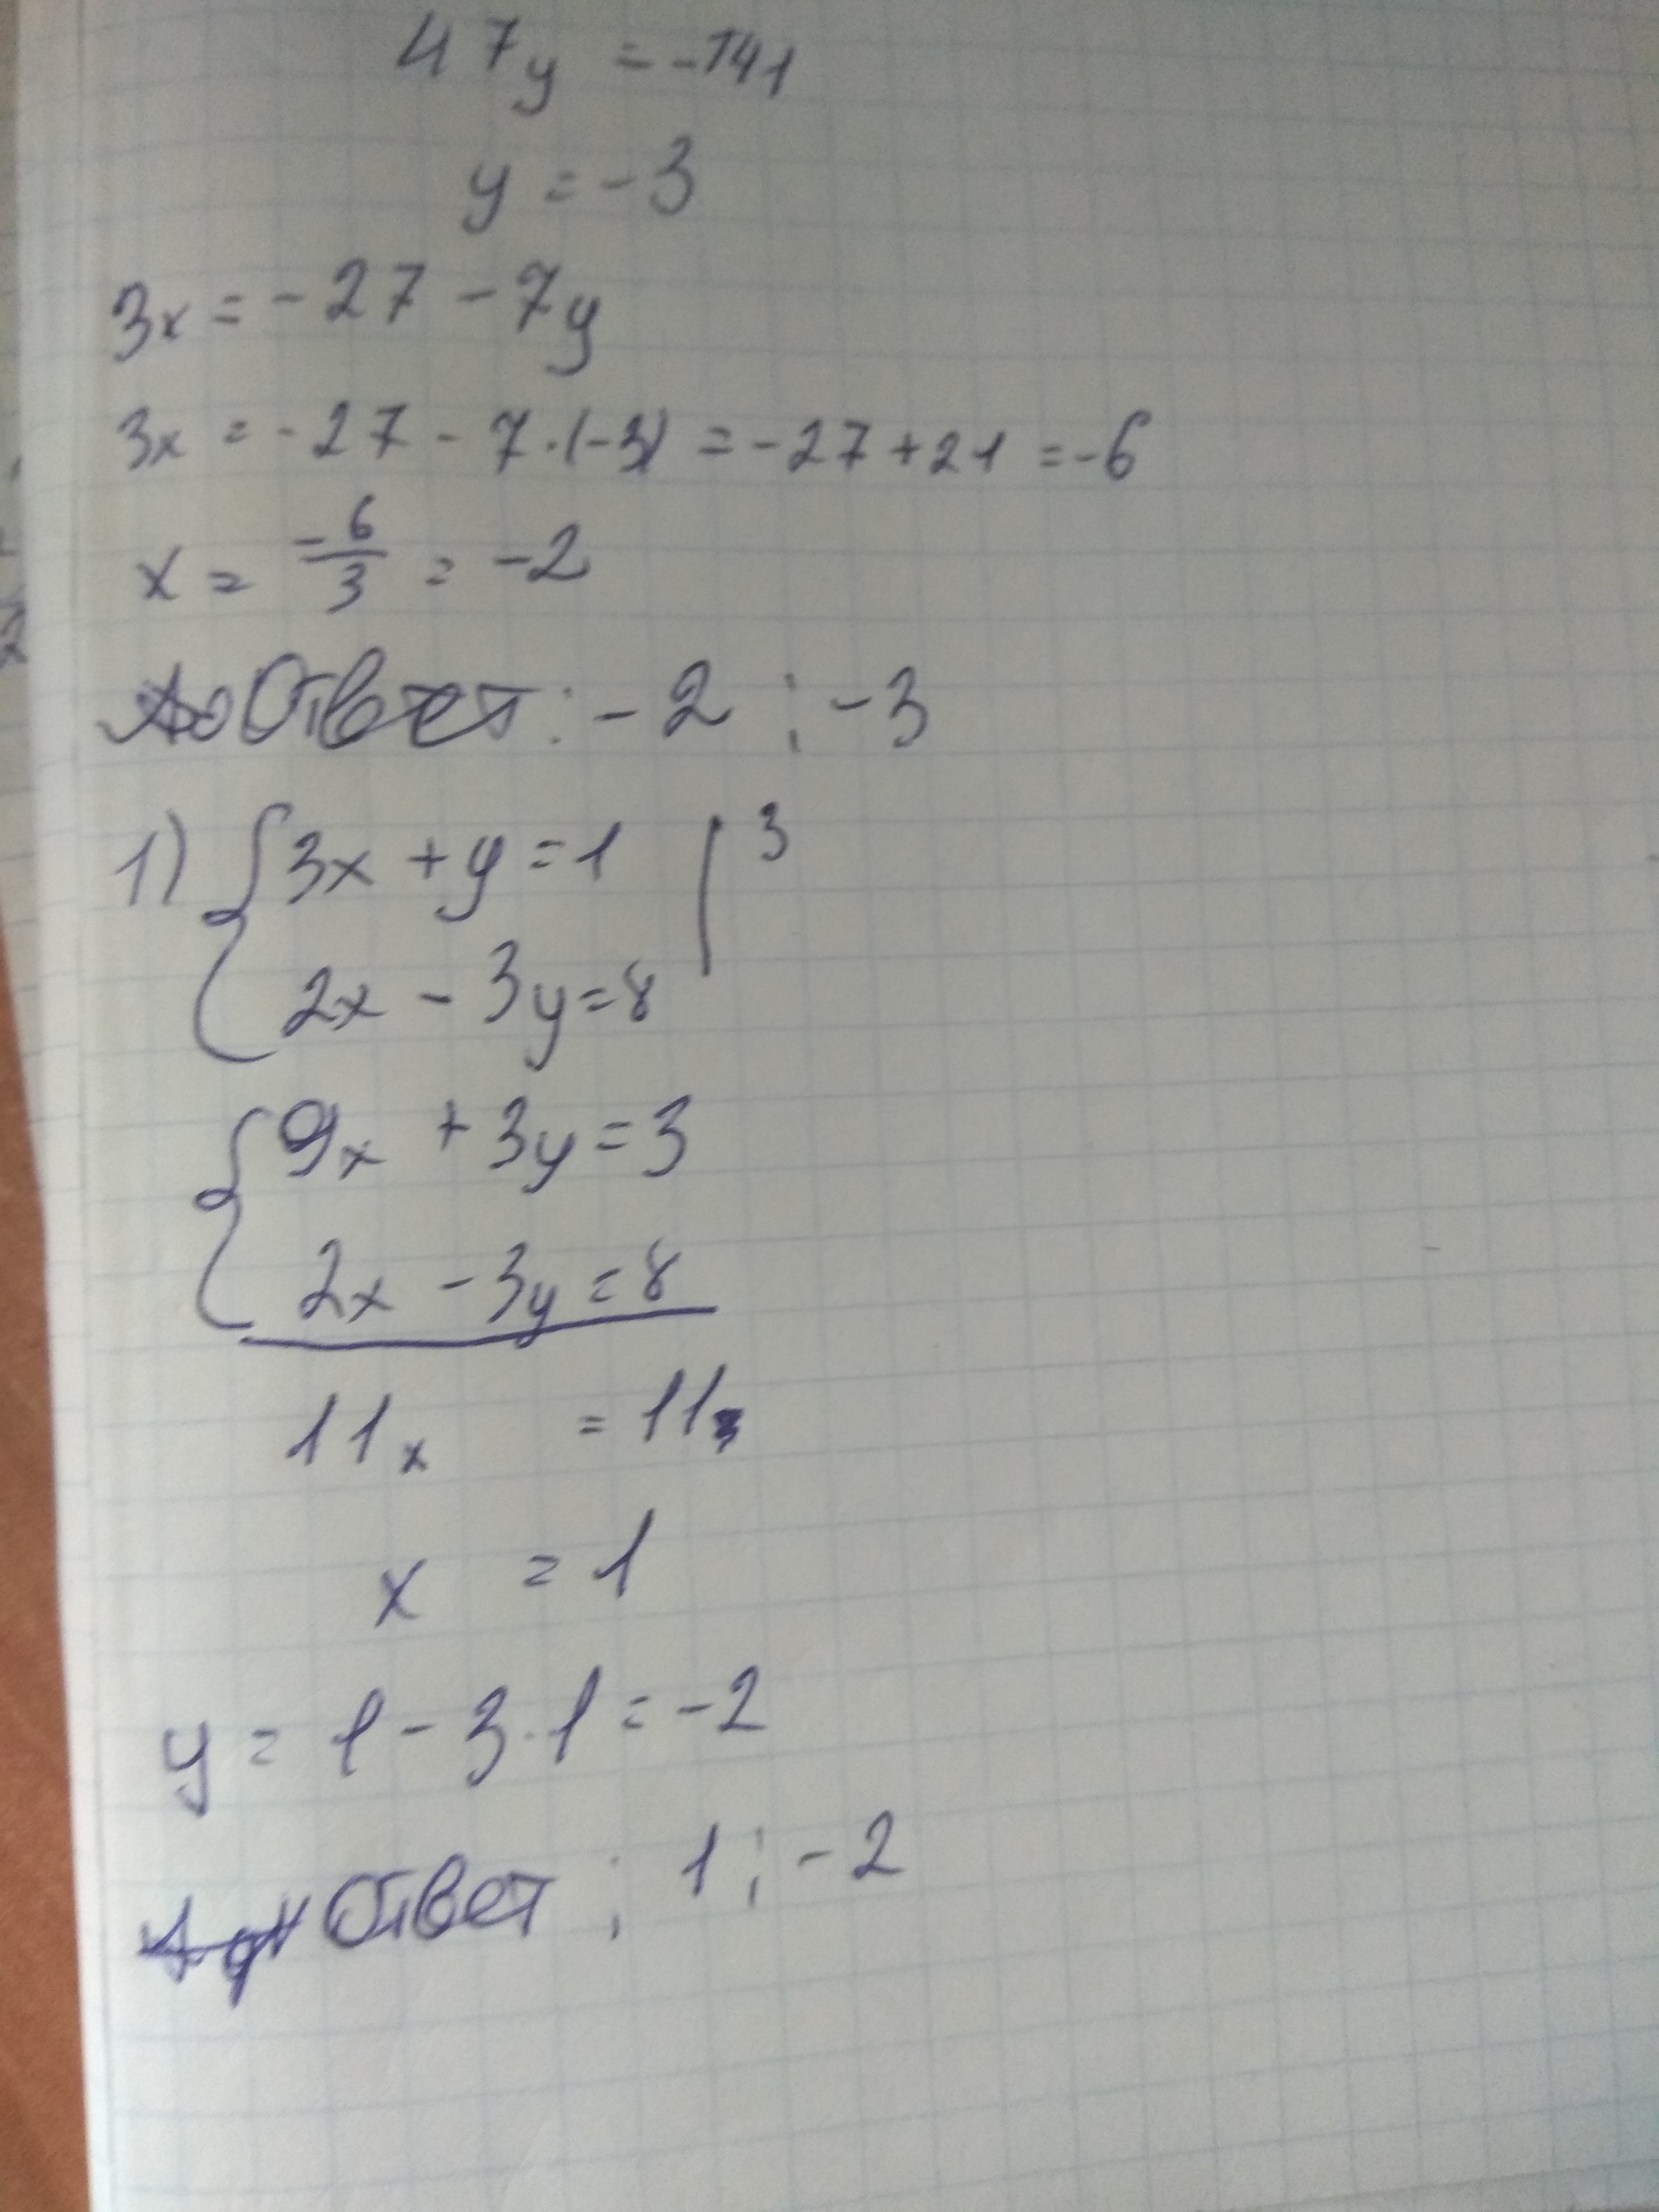 47y = -141
y = -3
3x = -27 - 7y
3x = -27 - 7·(-3) = -27 + 21 = -6
x = -6/3 = -2
Ответ: -2; -3
1) { 3x + y = 1 | 3
2x - 3y = 8
{ 9x + 3y = 3
2x - 3y = 8
11x = 11
x = 1
y = 1 - 3·1 = -2
Ответ: 1; -2